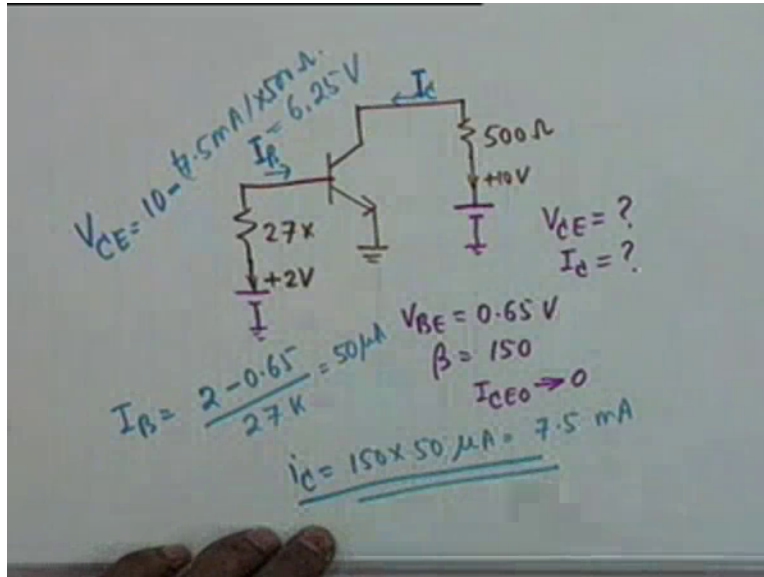 V_CE = 10 - 7.5mA/x500Ω.
= 6.25V
I_B
I_C
500Ω
+10V
27K
+2V
V_CE = ?
I_C = ?
V_BE = 0.65 V
β = 150
I_CEO → 0
I_B = 2 - 0.65 / 27K = 50μA
i_C = 150 x 50 μA = 7.5 mA